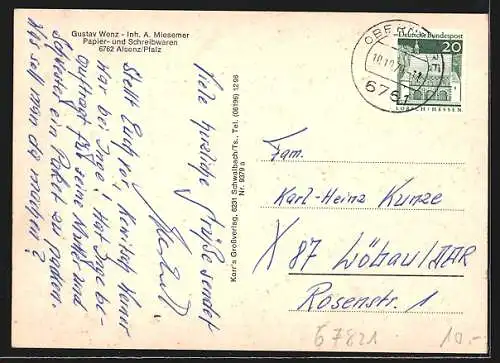 Gustav Wenz - Inh. A. Miesemer
Papier- und Schreibwaren
6762 Alsenz/Pfalz
Viele herzliche
Grüße sendet
Stellt Euch vor, Kerstin kam
war bei Inge! Hat Inge be-
auftragt für seine Mutter und
Schwester ein Paket zu packen.
Was soll man da machen?
Karr's Großverlag, 6231 Schwalbach/Ts., Tel. (06196) 12 96
Nr. 9379 a
OBERN
10.10.70
6761
Deutsche Bundespost
20
LORSCH · HESSEN
Fam.
Karl-Heinz Kunze
X 87 Löbau/DDR
Rosenstr. 1
67821
10.-